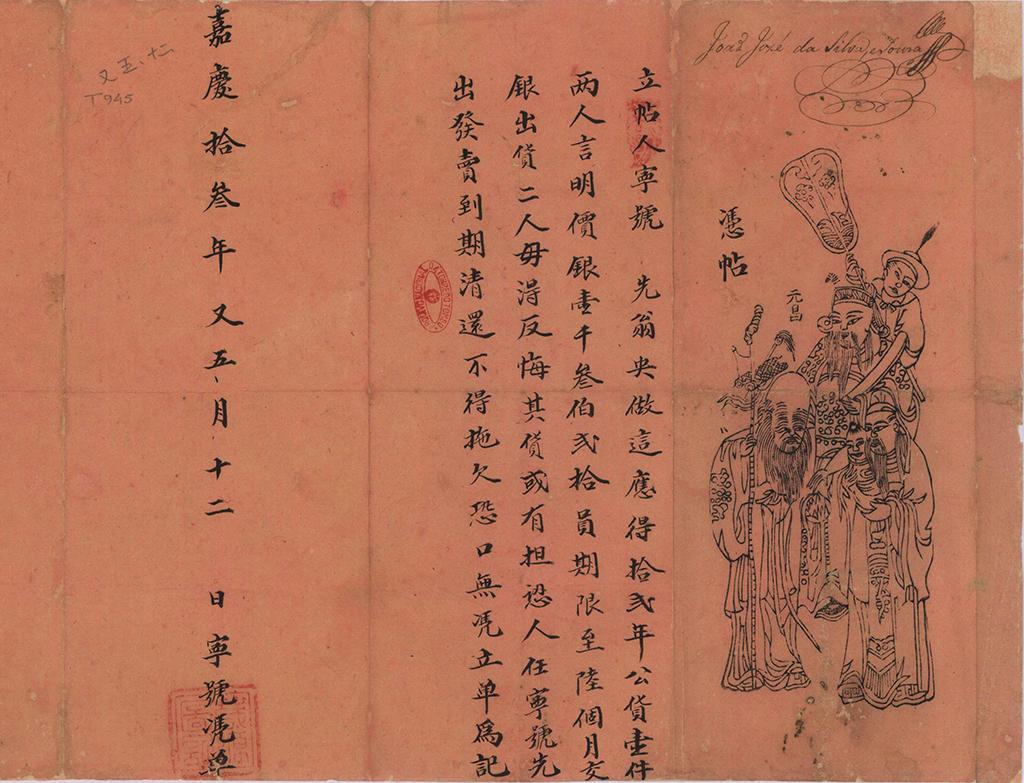 João José da Silva e Souza
憑帖
元昌
立帖人寧號　先翁央做這應得拾弍年公貨壹件
两人言明價銀壹千叁伯弍拾員期限至陸個月交
銀出貨二人毋得反悔其貨或有担
人任寧號先
出發賣到期清還不得拖欠恐口無凴立单為記
嘉慶拾叁年又五月十二　日寧號凴单
又五、十二
T945